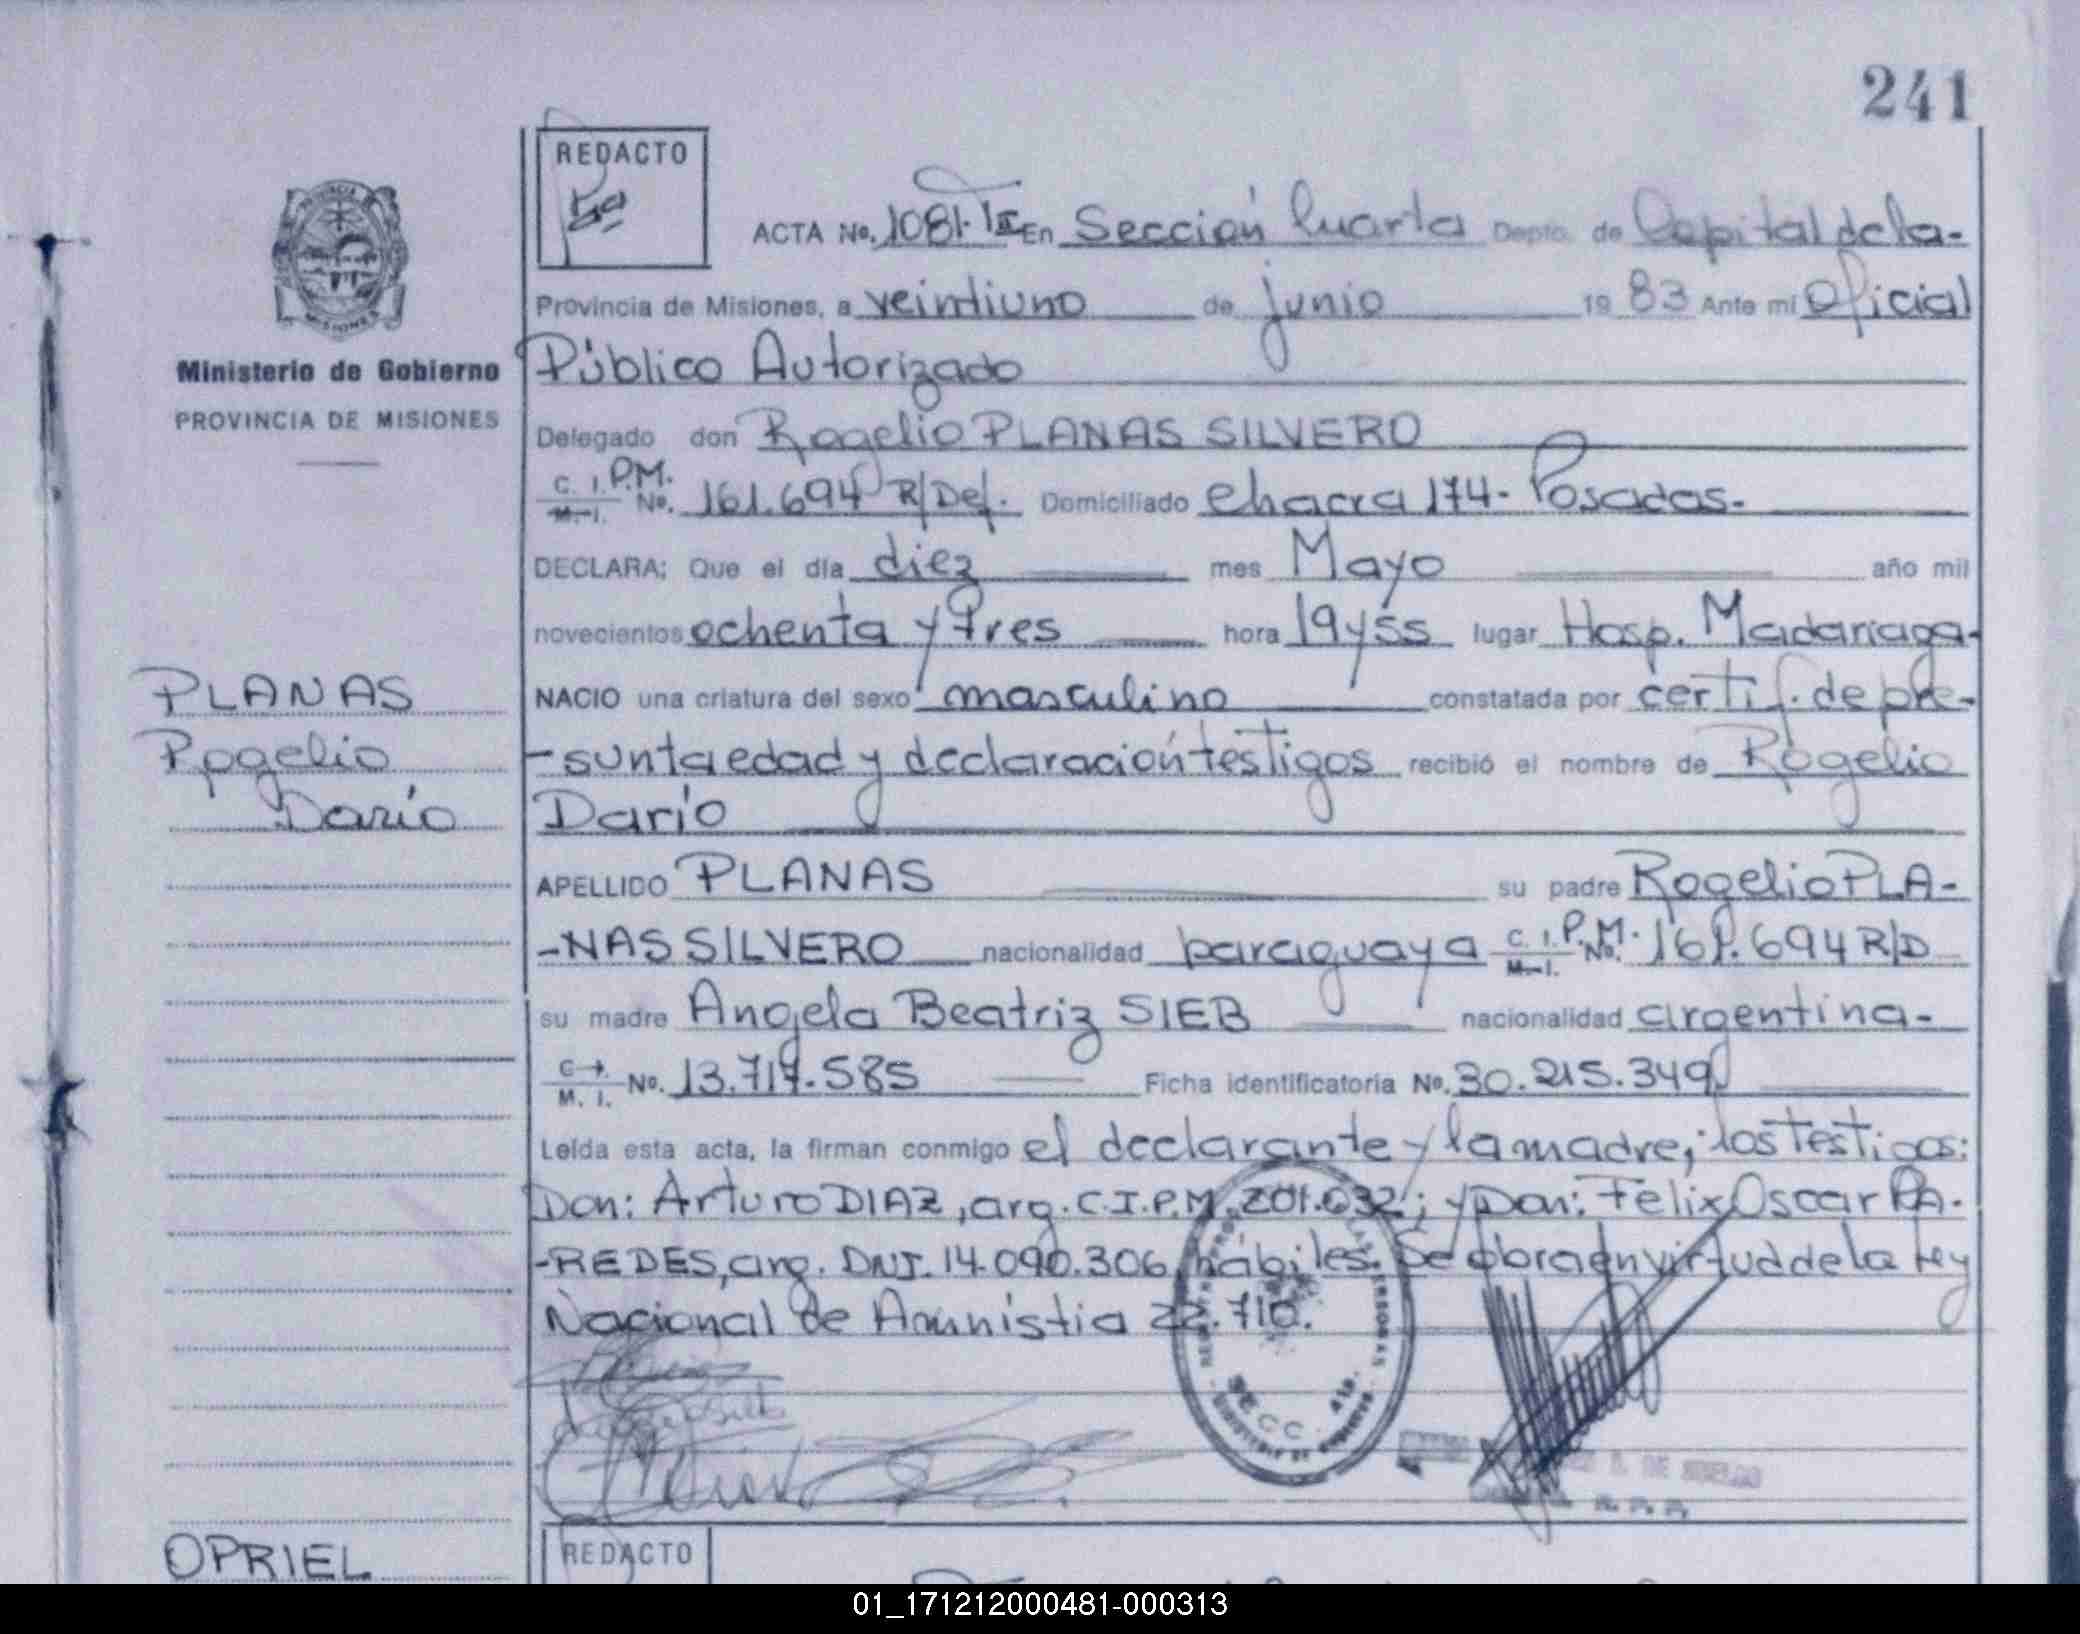 241
REDACTO
ACTA No. 1081. T III En Sección Cuarta Depto. de Capital de la-
Provincia de Misiones, a veintiuno de junio 1983 Ante mí Oficial
Ministerio de Gobierno
Público Autorizado
PROVINCIA DE MISIONES
Delegado don Rogelio PLANAS SILVERO
C. I. P.M. M. I. No. 161.694 R/Def. Domiciliado chacra 174- Posadas.-
DECLARA; Que el día diez mes Mayo año mil
novecientos ochenta y tres hora 19y55 lugar Hosp. Madariaga-
PLANAS
NACIO una criatura del sexo masculino constatada por certif. de pre-
Rogelio
-sunta edad y declaración testigos recibió el nombre de Rogelio
Darío
Darío
APELLIDO PLANAS su padre Rogelio PLA-
-NAS SILVERO nacionalidad paraguaya C. I. P.M. M. I. No. 161.694 R/D
su madre Angela Beatriz SIEB nacionalidad argentina-
C. I. M. I. No. 13.717.585 Ficha identificatoria No. 30.215.349
Leída esta acta, la firman conmigo el declarante y la madre, los testigos:
Don: Arturo DIAZ, arg. C.I.P.M. 201.032; y Don: Felix Oscar PA-
-REDES, arg. DNI. 14.090.306 hábiles. Se obra en virtud de la ley
Nacional de Amnistia 22.710.
SECC 4ta.
OPRIEL
REDACTO
01_171212000481-000313